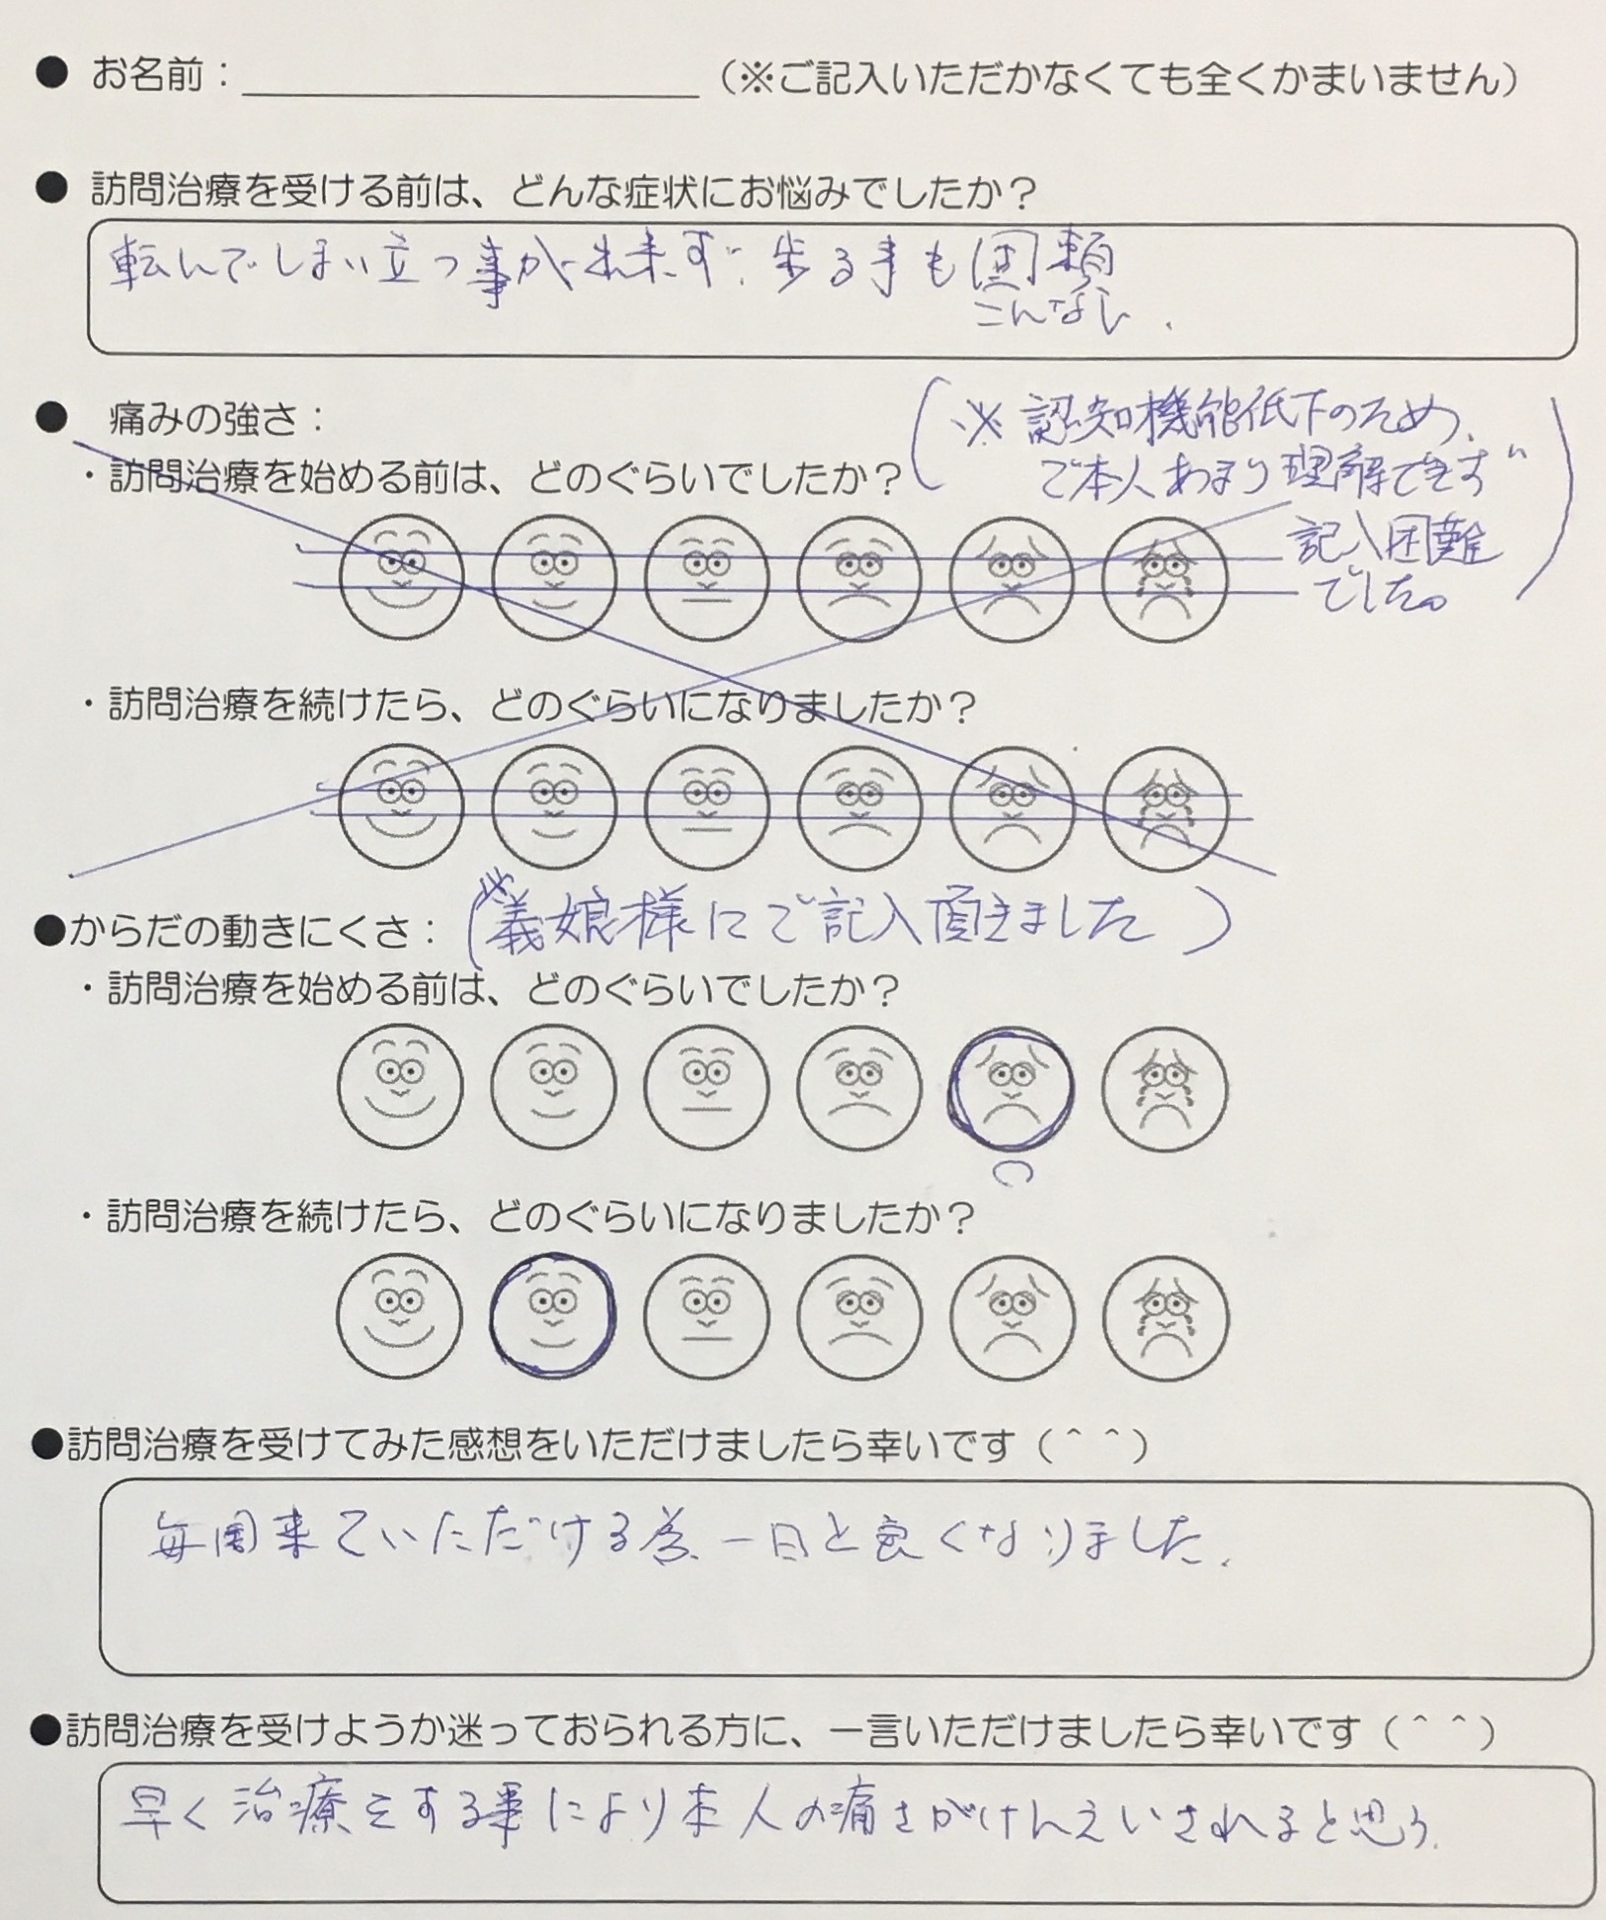 ● お名前：（※ご記入いただかなくても全くかまいません）
● 訪問治療を受ける前は、どんな症状にお悩みでしたか？
転んでしまい立つ事が出来ず、歩る事も困頼
こんなん.
● 痛みの強さ：
・訪問治療を始める前は、どのぐらいでしたか？
(※ 認知機能低下のため、
ご本人あまり理解できず
記入困難
でした。)
・訪問治療を続けたら、どのぐらいになりましたか？
●からだの動きにくさ：(※義娘様にご記入頂きました)
・訪問治療を始める前は、どのぐらいでしたか？
・訪問治療を続けたら、どのぐらいになりましたか？
●訪問治療を受けてみた感想をいただけましたら幸いです（＾＾）
毎周来ていただける為一日と良くなりました.
●訪問治療を受けようか迷っておられる方に、一言いただけましたら幸いです（＾＾）
早く治療をする事により本人の痛さがけんえいされると思う.